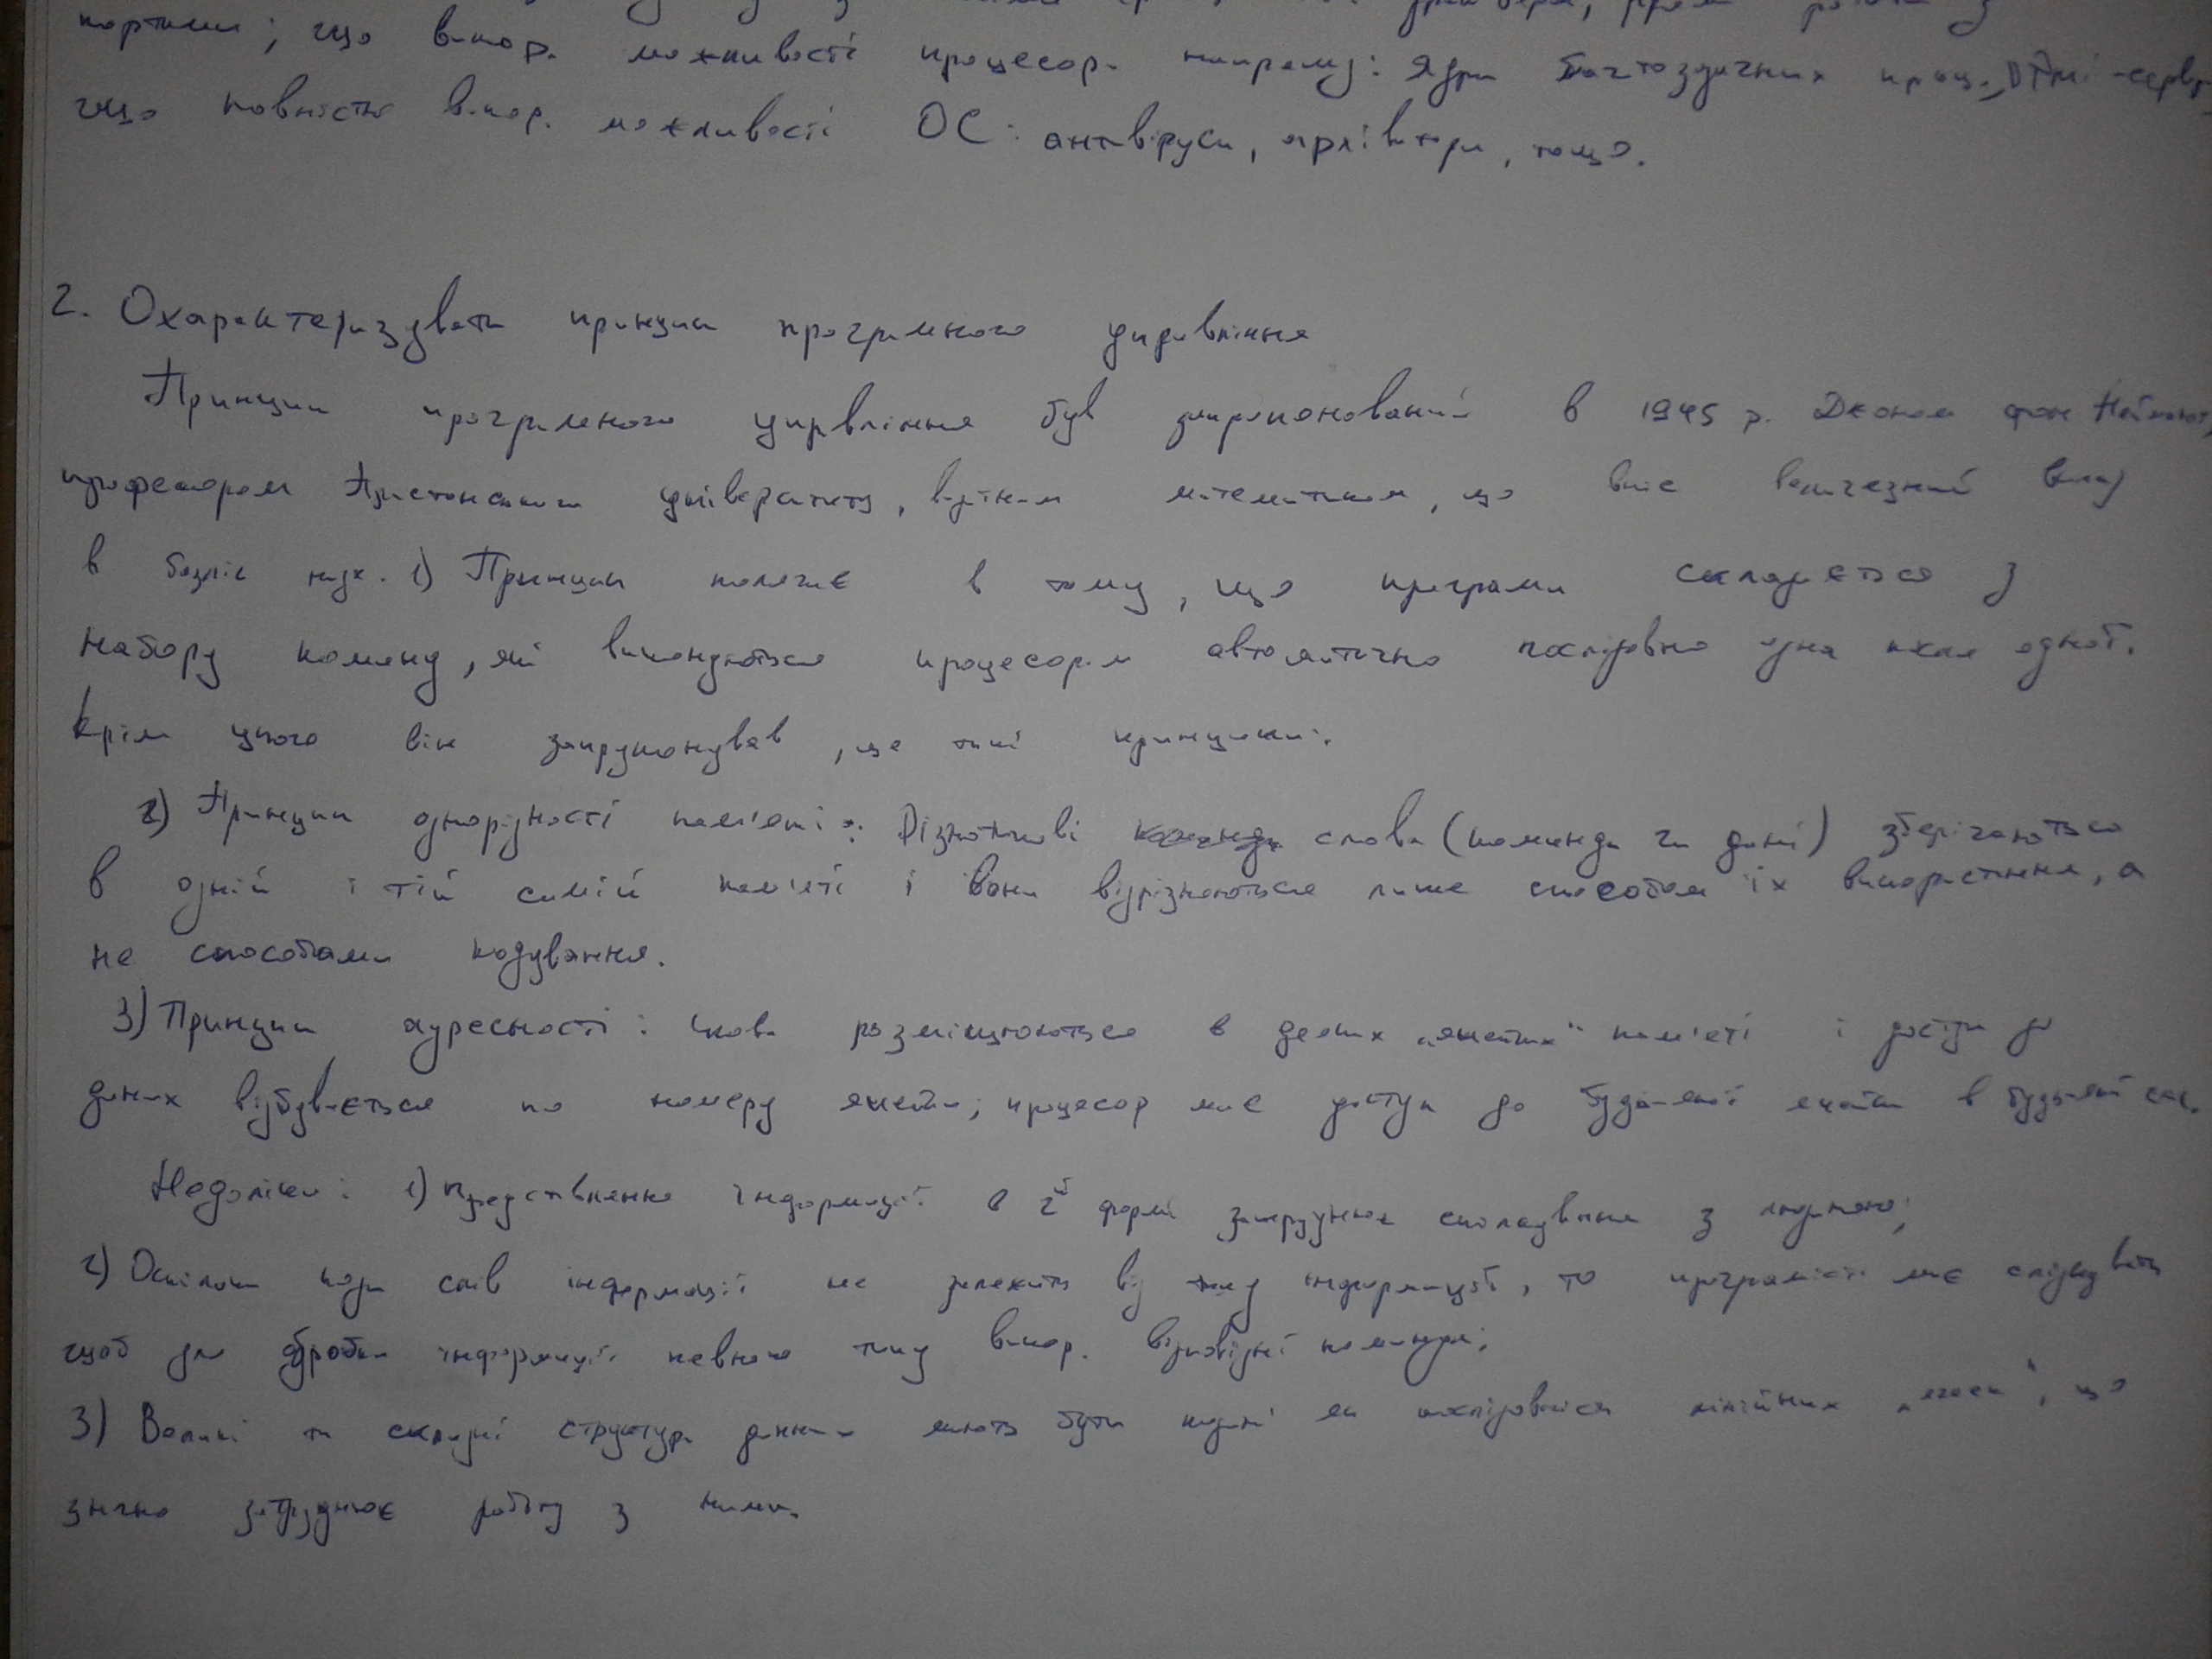 портами; що викор. можливості процесора напряму: ядра багатозадачних
що повністю викор. можливості ОС: антивіруси, архіватори, тощо.
2. Охарактеризувати принцип програмного управління
Принцип програмного управління був запропонований в 1945 р. Джоном фон Нейманом,
професором Пристонського університету, видатним математиком, що вніс величезний вклад
в безліч наук. 1) Принцип полягає в тому, що програма складається з
набору команд, які виконуються процесором автоматично послідовно одна після одної.
Крім цього він запропонував, ще такі принципи:
2) Принцип однорідності пам'яті: Різнотипові слова (команди чи дані) зберігаються
в одній і тій самій пам'яті і вони відрізняються лише способом їх використання, а
не способами кодування.
3) Принцип адресності: слова розміщюються в деяких „ячейках" пам'яті і доступ до
даних відбувається по номеру ячейки; процесор має доступ до будь-якої ячейки в будь-який час.
Недоліки: 1) Представлення інформації в 2й формі затруднює спілкування з людиною;
2) Оскільки коди слів інформації не залежить від типу інформації, то програміст має слідкувати
щоб для обробки інформації певного типу викор. відповідні команди;
3) Великі та складні структури данних мають бути подані як послідовність лінійних „ячеєк", що
значно затруднює роботу з ними.